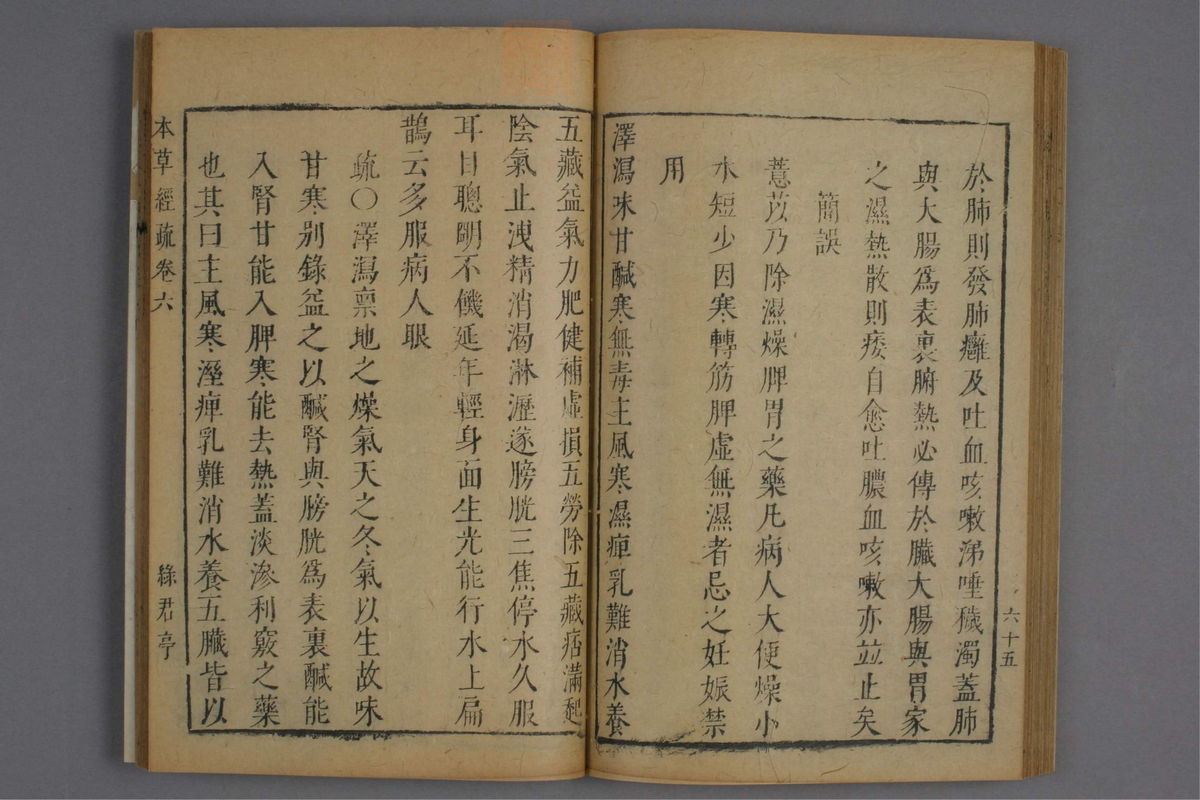 於肺則發肺癰及吐血咳嗽涕唾穢濁蓋肺
與大腸爲表裏腑熱必傳於臟大腸與胃家
之濕熱散則痿自愈吐膿血咳嗽亦並止矣
簡誤
薏苡乃除濕燥脾胃之藥凡病人大便燥小
水短少因寒轉筋脾虛無濕者忌之妊娠禁
用
澤瀉味甘鹹寒無毒主風寒濕痺乳難消水養
六十五
五藏益氣力肥健補虛損五勞除五藏痞滿起
陰氣止洩精消渴淋瀝逐膀胱三焦停水久服
耳目聰明不饑延年輕身面生光能行水上扁
鵲云多服病人眼
疏〇澤瀉禀地之燥氣天之冬氣以生故味
甘寒别錄益之以鹹腎與膀胱爲表裏鹹能
入腎甘能入脾寒能去熱蓋淡滲利竅之藥
也其曰主風寒溼痺乳難消水養五臟皆以
本草經疏卷六
綠君亭